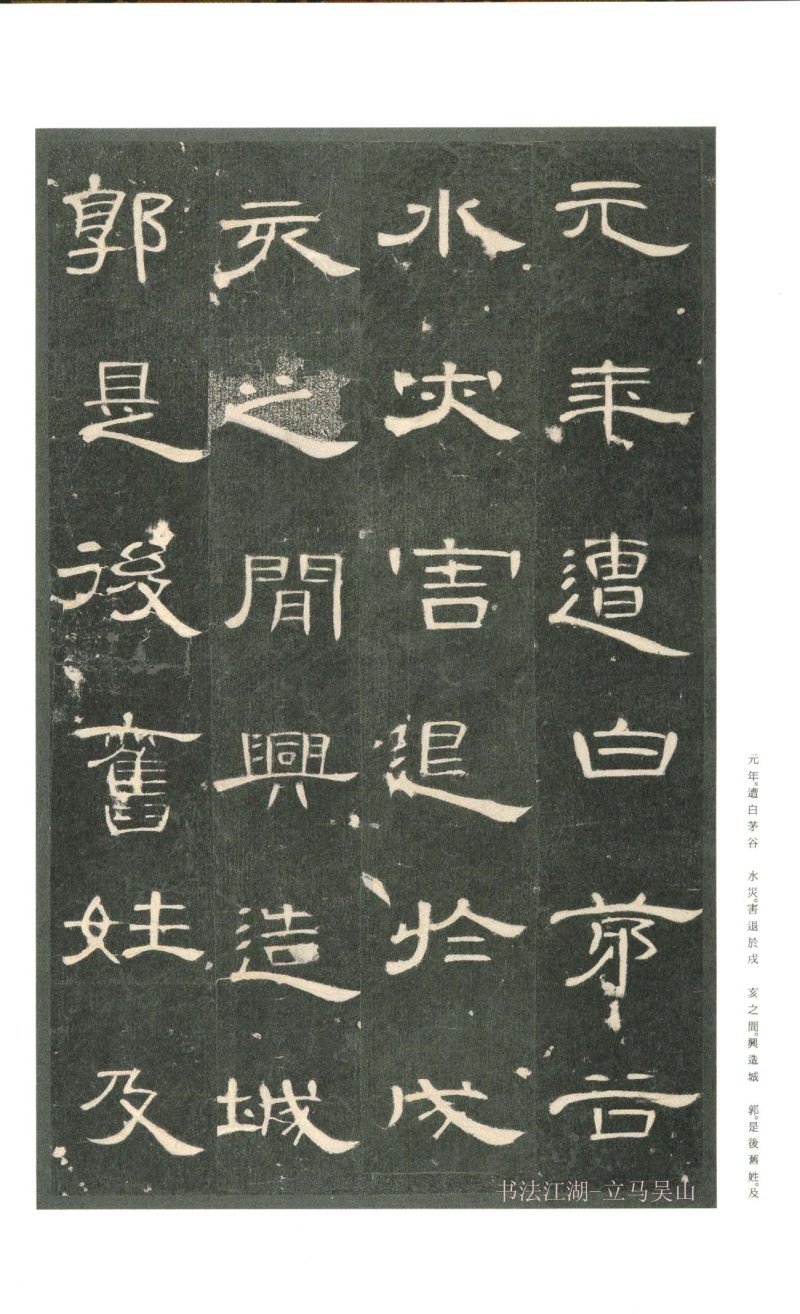 元年遭白茅谷
水災害退於戌
亥之間興造城
郭是後舊姓及
元年。遭白茅谷　水災。害退於戌　亥之間。興造城　郭。是後舊姓。及
书法江湖-立马吴山